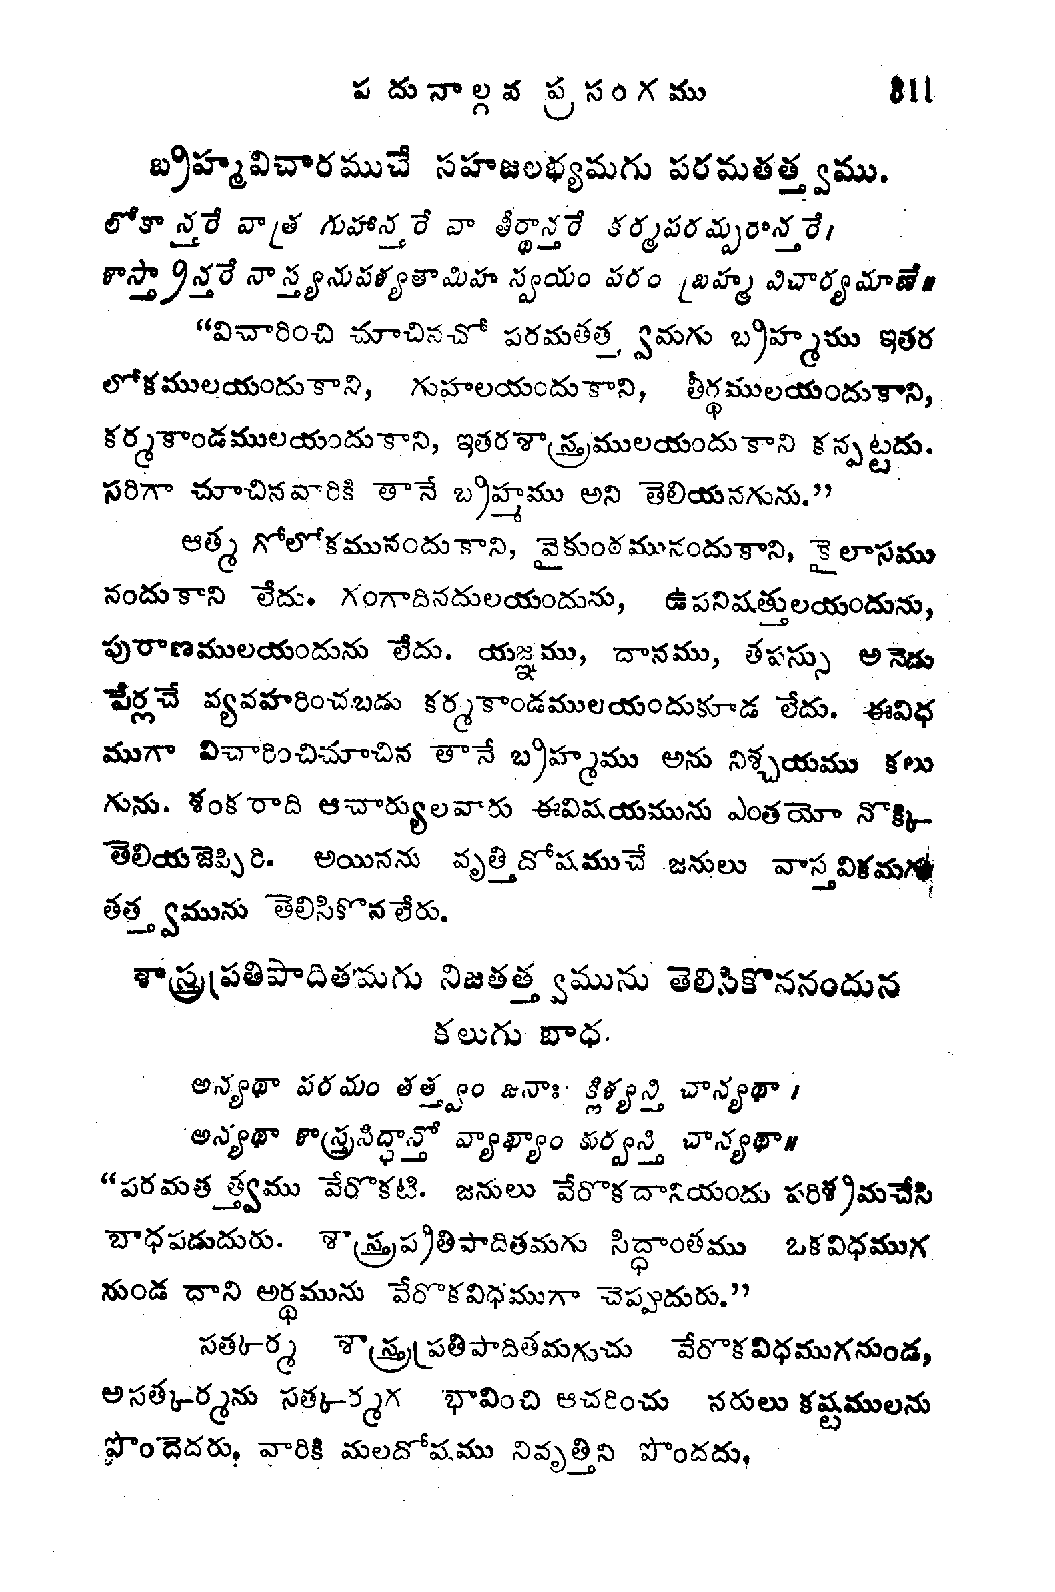 పదునాల్గవ ప్రసంగము 311
బ్రహ్మవిచారముచే సహజలభ్యమగు పరమతత్త్వము.
లోకాన్తరే వాత్ర గుహాన్తరే వా తీర్థాన్తరే కర్మపరమ్పరాన్తరే।
శాస్త్రాన్తరే నాస్త్యనుపశ్యతామిహ స్వయం పరం బ్రహ్మ విచార్యమాణే॥
“విచారించి చూచినచో పరమతత్త్వమగు బ్రహ్మము ఇతర
లోకములయందుకాని, గుహలయందుకాని, తీర్థములయందుకాని,
కర్మకాండములయందుకాని, ఇతరశాస్త్రములయందుకాని కన్పట్టదు.
సరిగా చూచినవారికి తానే బ్రహ్మము అని తెలియనగును.”
ఆత్మ గోలోకమునందుకాని, వైకుంఠమునందుకాని, కైలాసము
నందుకాని లేదు. గంగాదినదులయందును, ఉపనిషత్తులయందును,
పురాణములయందును లేదు. యజ్ఞము, దానము, తపస్సు అనెడు
పేర్లచే వ్యవహరించబడు కర్మకాండములయందుకూడ లేదు. ఈవిధ
ముగా విచారించిచూచిన తానే బ్రహ్మము అను నిశ్చయము కలు
గును. శంకరాది ఆచార్యులవారు ఈవిషయమును ఎంతయో నొక్కి
తెలియజెప్పిరి. అయినను వృత్తిదోషముచే జనులు వాస్తవికమగు
తత్త్వమును తెలిసికొనలేరు.
శాస్త్రప్రతిపాదితమగు నిజతత్త్వమును తెలిసికొననందున
కలుగు బాధ.
అన్యథా పరమం తత్త్వం జనాః క్లిశ్యన్తి చాన్యథా।
అన్యథా శాస్త్రసిద్ధాన్తో వ్యాఖ్యాం కుర్వన్తి చాన్యథా॥
“పరమతత్త్వము వేరొకటి. జనులు వేరొకదానియందు పరిశ్రమచేసి
బాధపడుదురు. శాస్త్రప్రతిపాదితమగు సిద్ధాంతము ఒకవిధముగ
నుండ దాని అర్థమును వేరొకవిధముగా చెప్పుదురు.”
సత్కర్మ శాస్త్రప్రతిపాదితమగుచు వేరొకవిధముగనుండ,
అసత్కర్మను సత్కర్మగ భావించి ఆచరించు నరులు కష్టములను
పొందెదరు, వారికి మలదోషము నివృత్తిని పొందదు,